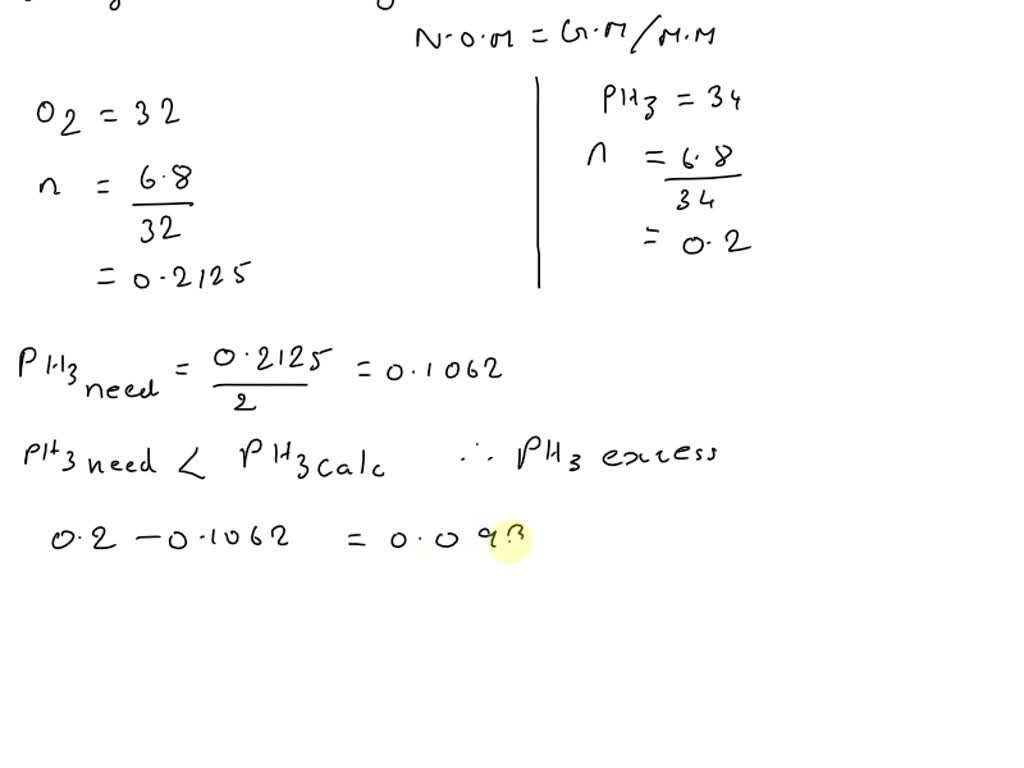 N.O.M = G.M/M.M
O2 = 32
n = 6.8
32
= 0.2125
PH3 = 34
n = 6.8
34
= 0.2
PH3 need = 0.2125 = 0.1062
2
PH3 need < PH3 calc ∴ PH3 excess
0.2 - 0.1062 = 0.093